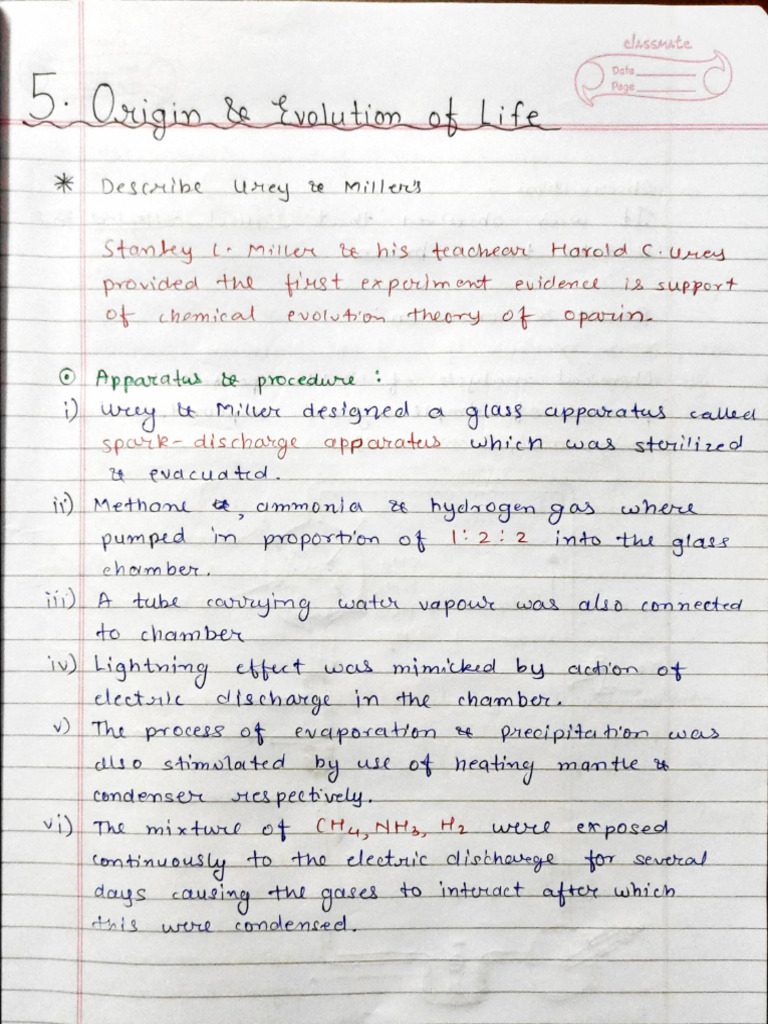 classmate
Date
Page
5. Origin & Evolution of Life
* Describe Urey & Miller's
Stanley L. Miller & his teachear Harold C. Urey
provided the first experiment evidence is support
of chemical evolution theory of oparin.
⊙ Apparatus & procedure :
i) Urey & Miller designed a glass apparatus called
spark-discharge apparatus which was sterilized
& evacuated.
ii) Methane &, ammonia & hydrogen gas where
pumped in proportion of 1:2:2 into the glass
chamber.
iii) A tube carrying water vapour was also connected
to chamber
iv) Lightning effect was mimicked by action of
electric discharge in the chamber.
v) The process of evaporation & precipitation was
also stimulated by use of heating mantle &
condenser respectively.
vi) The mixture of CH4, NH3, H2 were exposed
continuously to the electric discharege for several
days causing the gases to interact after which
this were condensed.